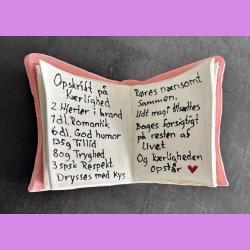 Opskrift på
Kærlighed
2 Hjerter i brand
1 dl. Romantik
6 dl. God humor
135g Tillid
80g Tryghed
3 spsk Respekt
Drysses med kys
Røres nænsomt
Sammen.
Lidt magi tilsættes
Bages forsigtigt
på resten af
livet
Og kærligheden
opstår ♥